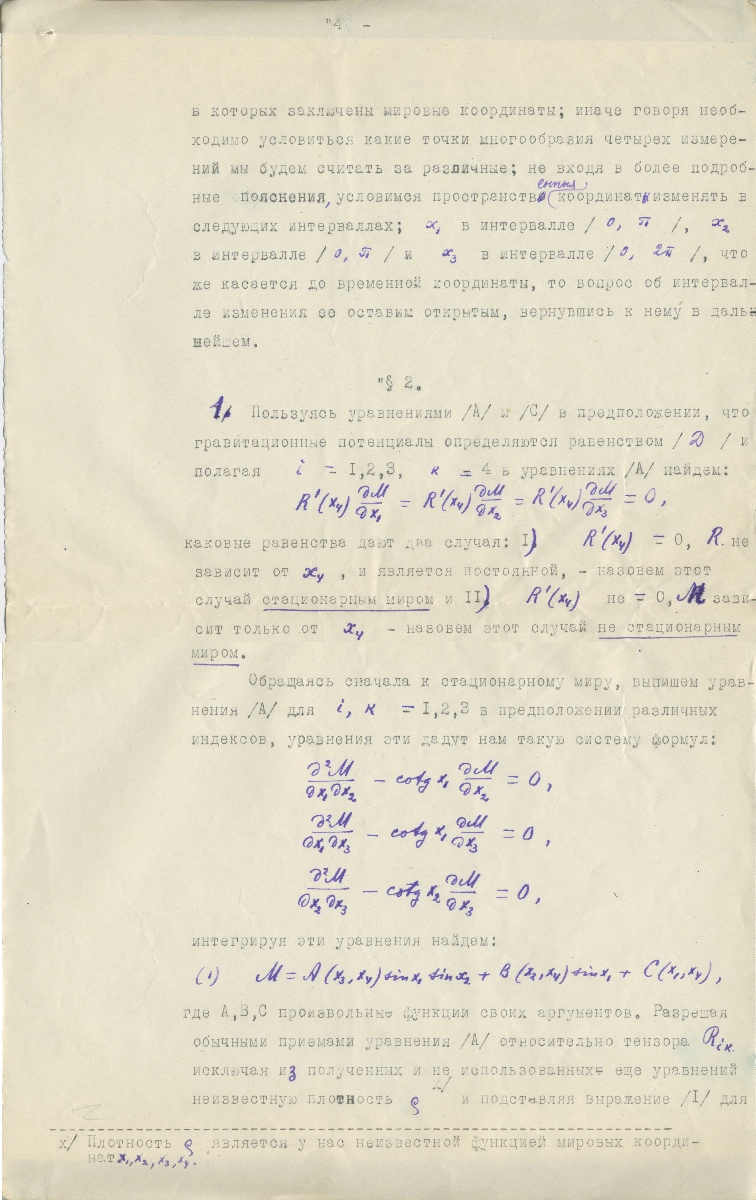 "4 -
в которых заключены мировые координаты; иначе говоря необ-
ходимо условиться какие точки многообразия четырех измере-
ний мы будем считать за различные; не входя в более подроб-
ные пояснения, условимся пространственныя координаты изменять в
следующих интерваллах; x₁ в интервалле / 0, π /, x₂
в интервалле / 0, π / и x₃ в интервалле / 0, 2π /, что
же касается до временной координаты, то вопрос об интервал-
ле изменения ее оставим открытым, вернувшись к нему в даль-
нейшем.
"§ 2.
1. Пользуясь уравнениями /А/ и /С/ в предположении, что
гравитационные потенциалы определяются равенством / D / и
полагая i = I,2,3, к = 4 в уравнениях /А/ найдем:
R'(x₄) ∂M/∂x₁ = R'(x₄) ∂M/∂x₂ = R'(x₄) ∂M/∂x₃ = 0,
каковые равенства дают два случая: I) R'(x₄) = 0, R не
зависит от x₄ , и является постоянной, - назовем этот
случай стационарным миром и II) R'(x₄) не = 0, M зави-
сит только от x₄ - назовем этот случай не стационарным
миром.
Обращаясь сначала к стационарному миру, выпишем урав-
нения /А/ для i, к = I,2,3 в предположении различных
индексов, уравнения эти дадут нам такую систему формул:
∂²M/∂x₁∂x₂ - cotg x₁ ∂M/∂x₂ = 0,
∂²M/∂x₁∂x₃ - cotg x₁ ∂M/∂x₃ = 0,
∂²M/∂x₂∂x₃ - cotg x₂ ∂M/∂x₃ = 0,
интегрируя эти уравнения найдем:
(1) M = A(x₃,x₄) sin x₁ sin x₂ + B(x₂,x₄) sin x₁ + C(x₁,x₄),
где А,В,С произвольные функции своих аргументов. Разрешая
обычными приемами уравнения /А/ относительно тензора Rᵢₖ
исключая из полученных и не использованных еще уравнений
неизвестную плотность ϱ х/ и подставляя выражение /I/ для
х/ Плотность ϱ является у нас неизвестной функцией мировых коорди-
нат x₁, x₂, x₃, x₄.